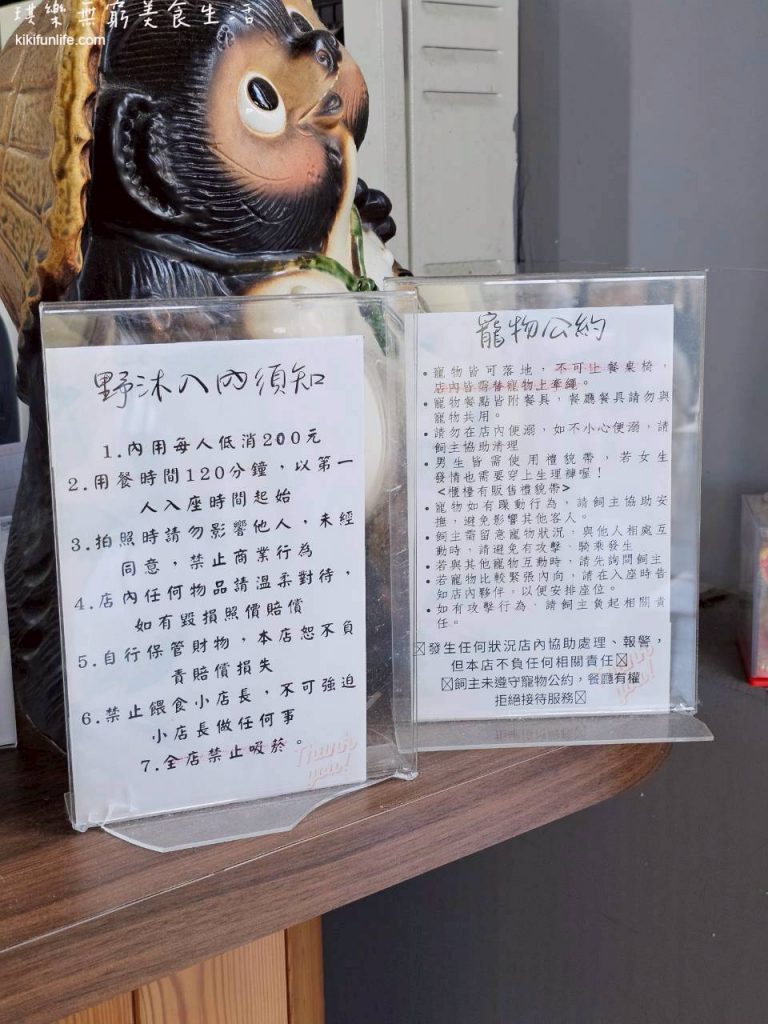 琪樂無窮美食生活
kikifunlife.com
野沐入內須知
1.內用每人低消200元
2.用餐時間120分鐘，以第一
人入座時間起始
3.拍照時請勿影響他人，未經
同意，禁止商業行為
4.店內任何物品請溫柔對待，
如有毀損照價賠償
5.自行保管財物，本店恕不負
責賠償損失
6.禁止餵食小店長，不可強迫
小店長做任何事
7.全店禁止吸菸。
Thank
you!
寵物公約
•寵物皆可落地，不可上餐桌椅，
店內皆需替寵物上牽繩。
•寵物餐點皆附餐具，餐廳餐具請勿與
寵物共用。
•請勿在店內便溺，如不小心便溺，請
飼主協助清理
•男生皆需使用禮貌帶，若女生
發情也需要穿上生理褲喔！
<櫃檯有販售禮貌帶>
•寵物如有躁動行為，請飼主協助安
撫，避免影響其他客人。
•飼主需留意寵物狀況，與他人相處互
動時，請避免有攻擊、騎乘發生
•若與其他寵物互動時，請先詢問飼主
•若寵物比較緊張內向，請在入座時告
知店內夥伴，以便安排座位。
•如有攻擊行為，請飼主負起相關責
任。
發生任何狀況店內協助處理、報警，
但本店不負任何相關責任
飼主未遵守寵物公約，餐廳有權
拒絕接待服務
you!